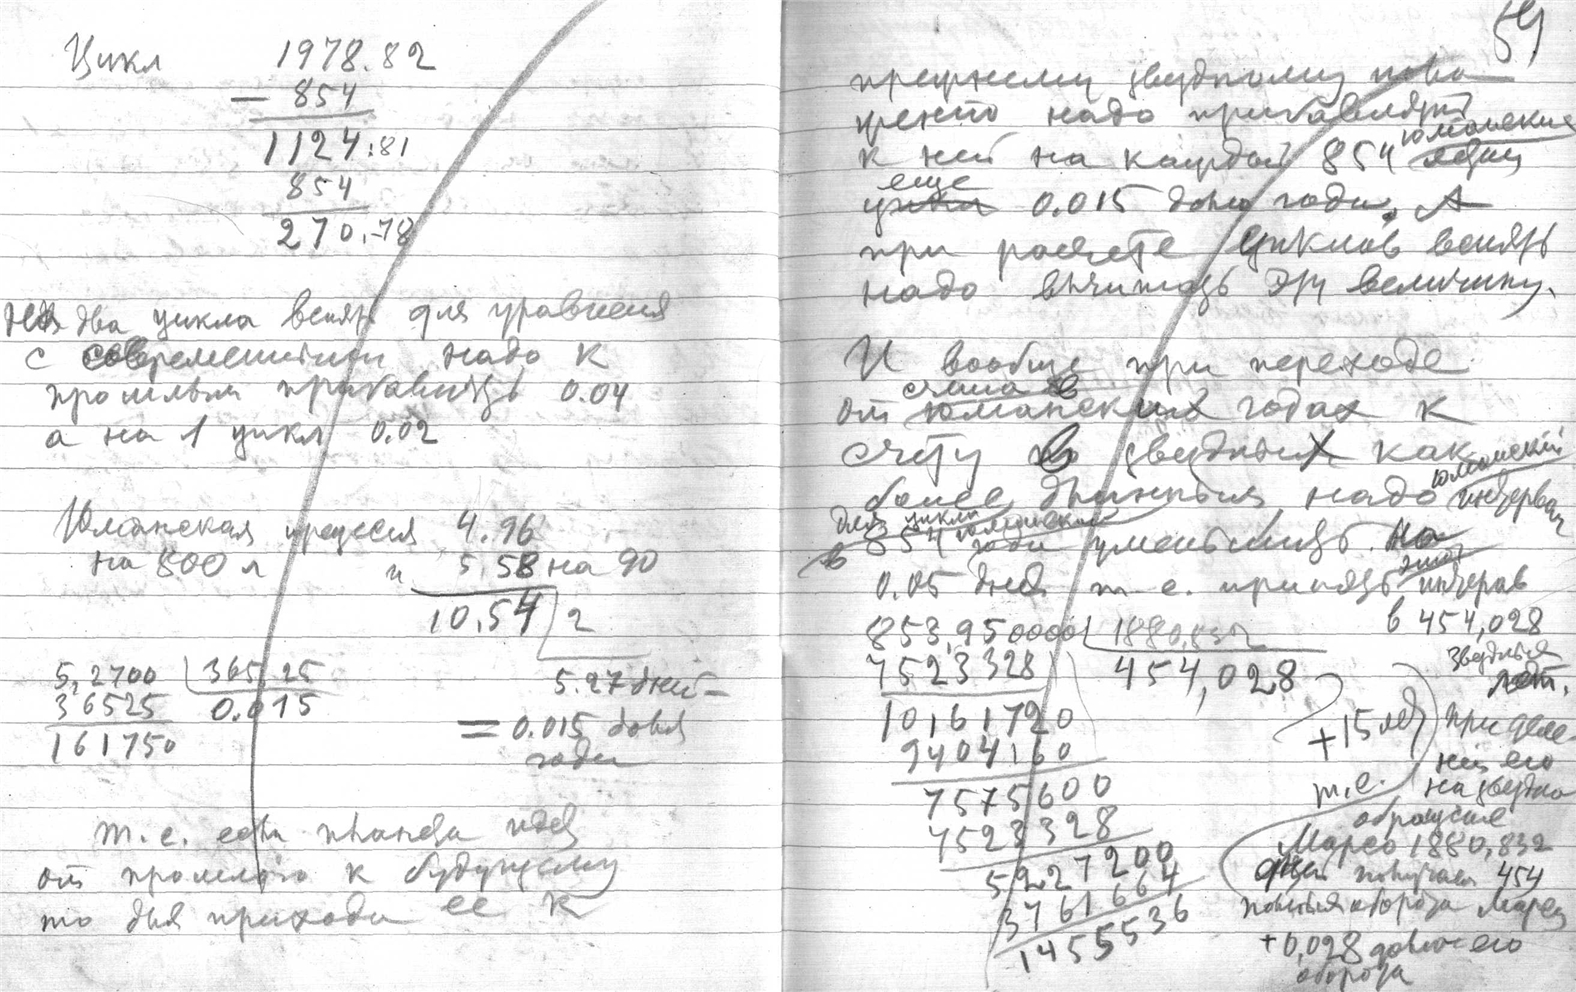 Цикл 1978.82
— 854
1124.81
854
270.78
На два цикла вспять для уравнения
с современным надо к
прошлым прибавить 0.04
а на 1 цикл 0.02
Юлианская прецессия 4.96
на 800 л и 5.58 на 90
10.54 2
5.27 дней
= 0.015 доля
года
5,2700 365,25
36525 0.015
161750
т.е. если планета идет
от прошлого к будущему
то для прихода ее к
59
прежнему звездному
надо прибавлять
к ней на каждый 854 юлианские
еще
0.015 долю года. А
при расчете циклов вспять
надо вычитать эту величину.
И вообще при переходе
от счета в юлианских годах к
счету в звездных как
более длинных надо юлианский интервал
для цикла
в 854 юлианский года уменьшить на
0.05 дней т.е. принять этот интервал
в 454,028
звездных
лет.
853,950000 1880,832
7523328 454,028
10161720
9404160
7575600
7523328
5227200
3761664
1455536
+15 лет
т.е.
при деле-
нии его
на звездно
обращение
Марса 1880,832
дней получаем 454
полных оборота Марса
+0,028 долю его
оборота